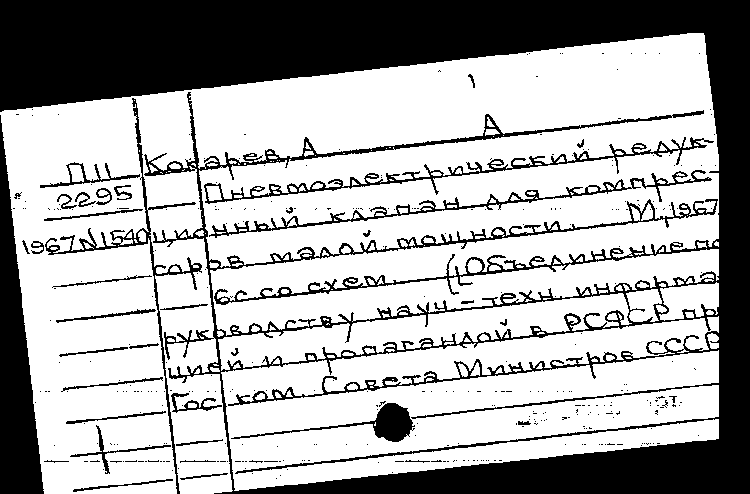 1
А
П11 Кокарев, А
2295 Пневмоэлектрический редук-
1967N1540 ционный клапан для компрес-
соров малой мощности. М., 1967
6с со схем. (Объединение по
руководству науч-техн. информа
цией и пропагандой в РСФСР пр
Гос ком. Совета Министров СССР